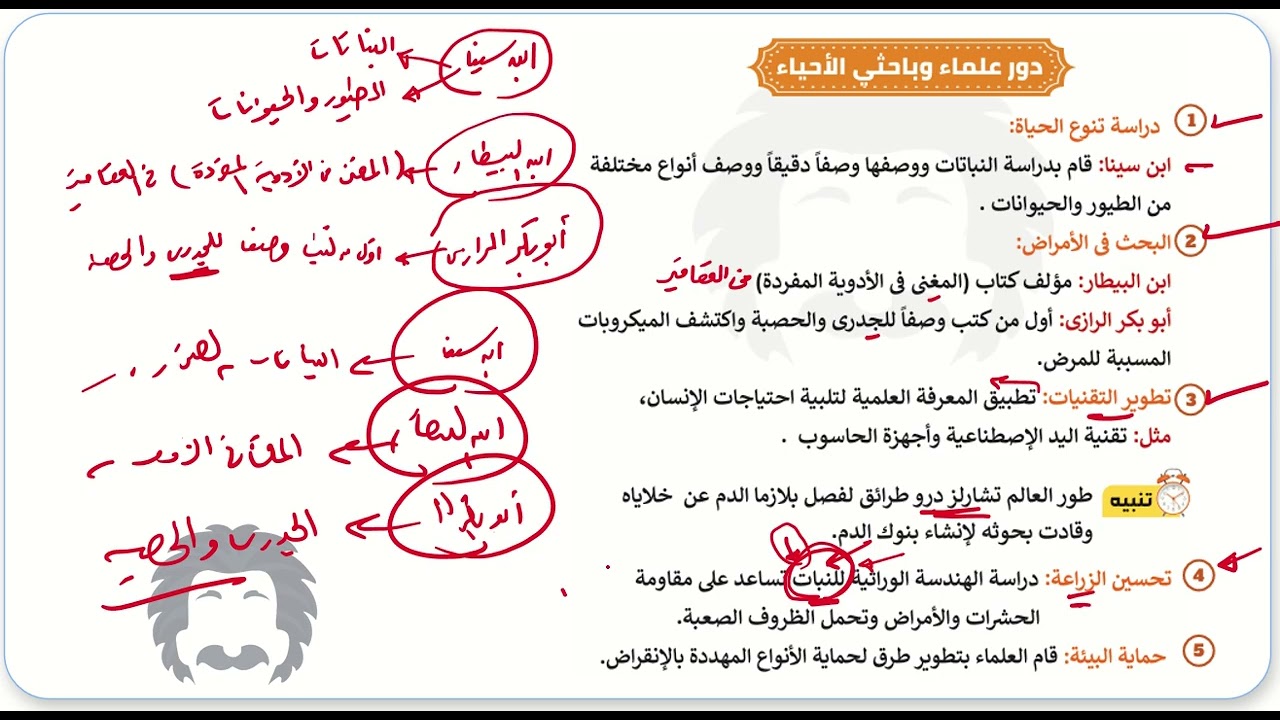 دور علماء وباحثي الأحياء
1 دراسة تنوع الحياة:
ابن سينا: قام بدراسة النباتات ووصفها وصفاً دقيقاً ووصف أنواع مختلفة
من الطيور والحيوانات .
2 البحث فى الأمراض:
ابن البيطار: مؤلف كتاب (المغنى فى الأدوية المفردة) فى العقاقير
أبو بكر الرازى: أول من كتب وصفاً للجدرى والحصبة واكتشف الميكروبات
المسببة للمرض.
3 تطوير التقنيات: تطبيق المعرفة العلمية لتلبية احتياجات الإنسان،
مثل: تقنية اليد الإصطناعية وأجهزة الحاسوب .
تنبيه
طور العالم تشارلز درو طرائق لفصل بلازما الدم عن خلاياه
وقادت بحوثه لإنشاء بنوك الدم.
4 تحسين الزراعة: دراسة الهندسة الوراثية للنبات تساعد على مقاومة
الحشرات والأمراض وتحمل الظروف الصعبة.
5 حماية البيئة: قام العلماء بتطوير طرق لحماية الأنواع المهددة بالإنقراض.
ابن سينا النباتات
الطيور والحيوانات
ابن البيطار (المغنى فى الأدوية المفردة) فى العقاقير
أبو بكر الرازى أول من كتب وصف للجدرى والحصبة
ابن سينا النباتات
ابن البيطار
أبو بكر
الجدرى والحصبة